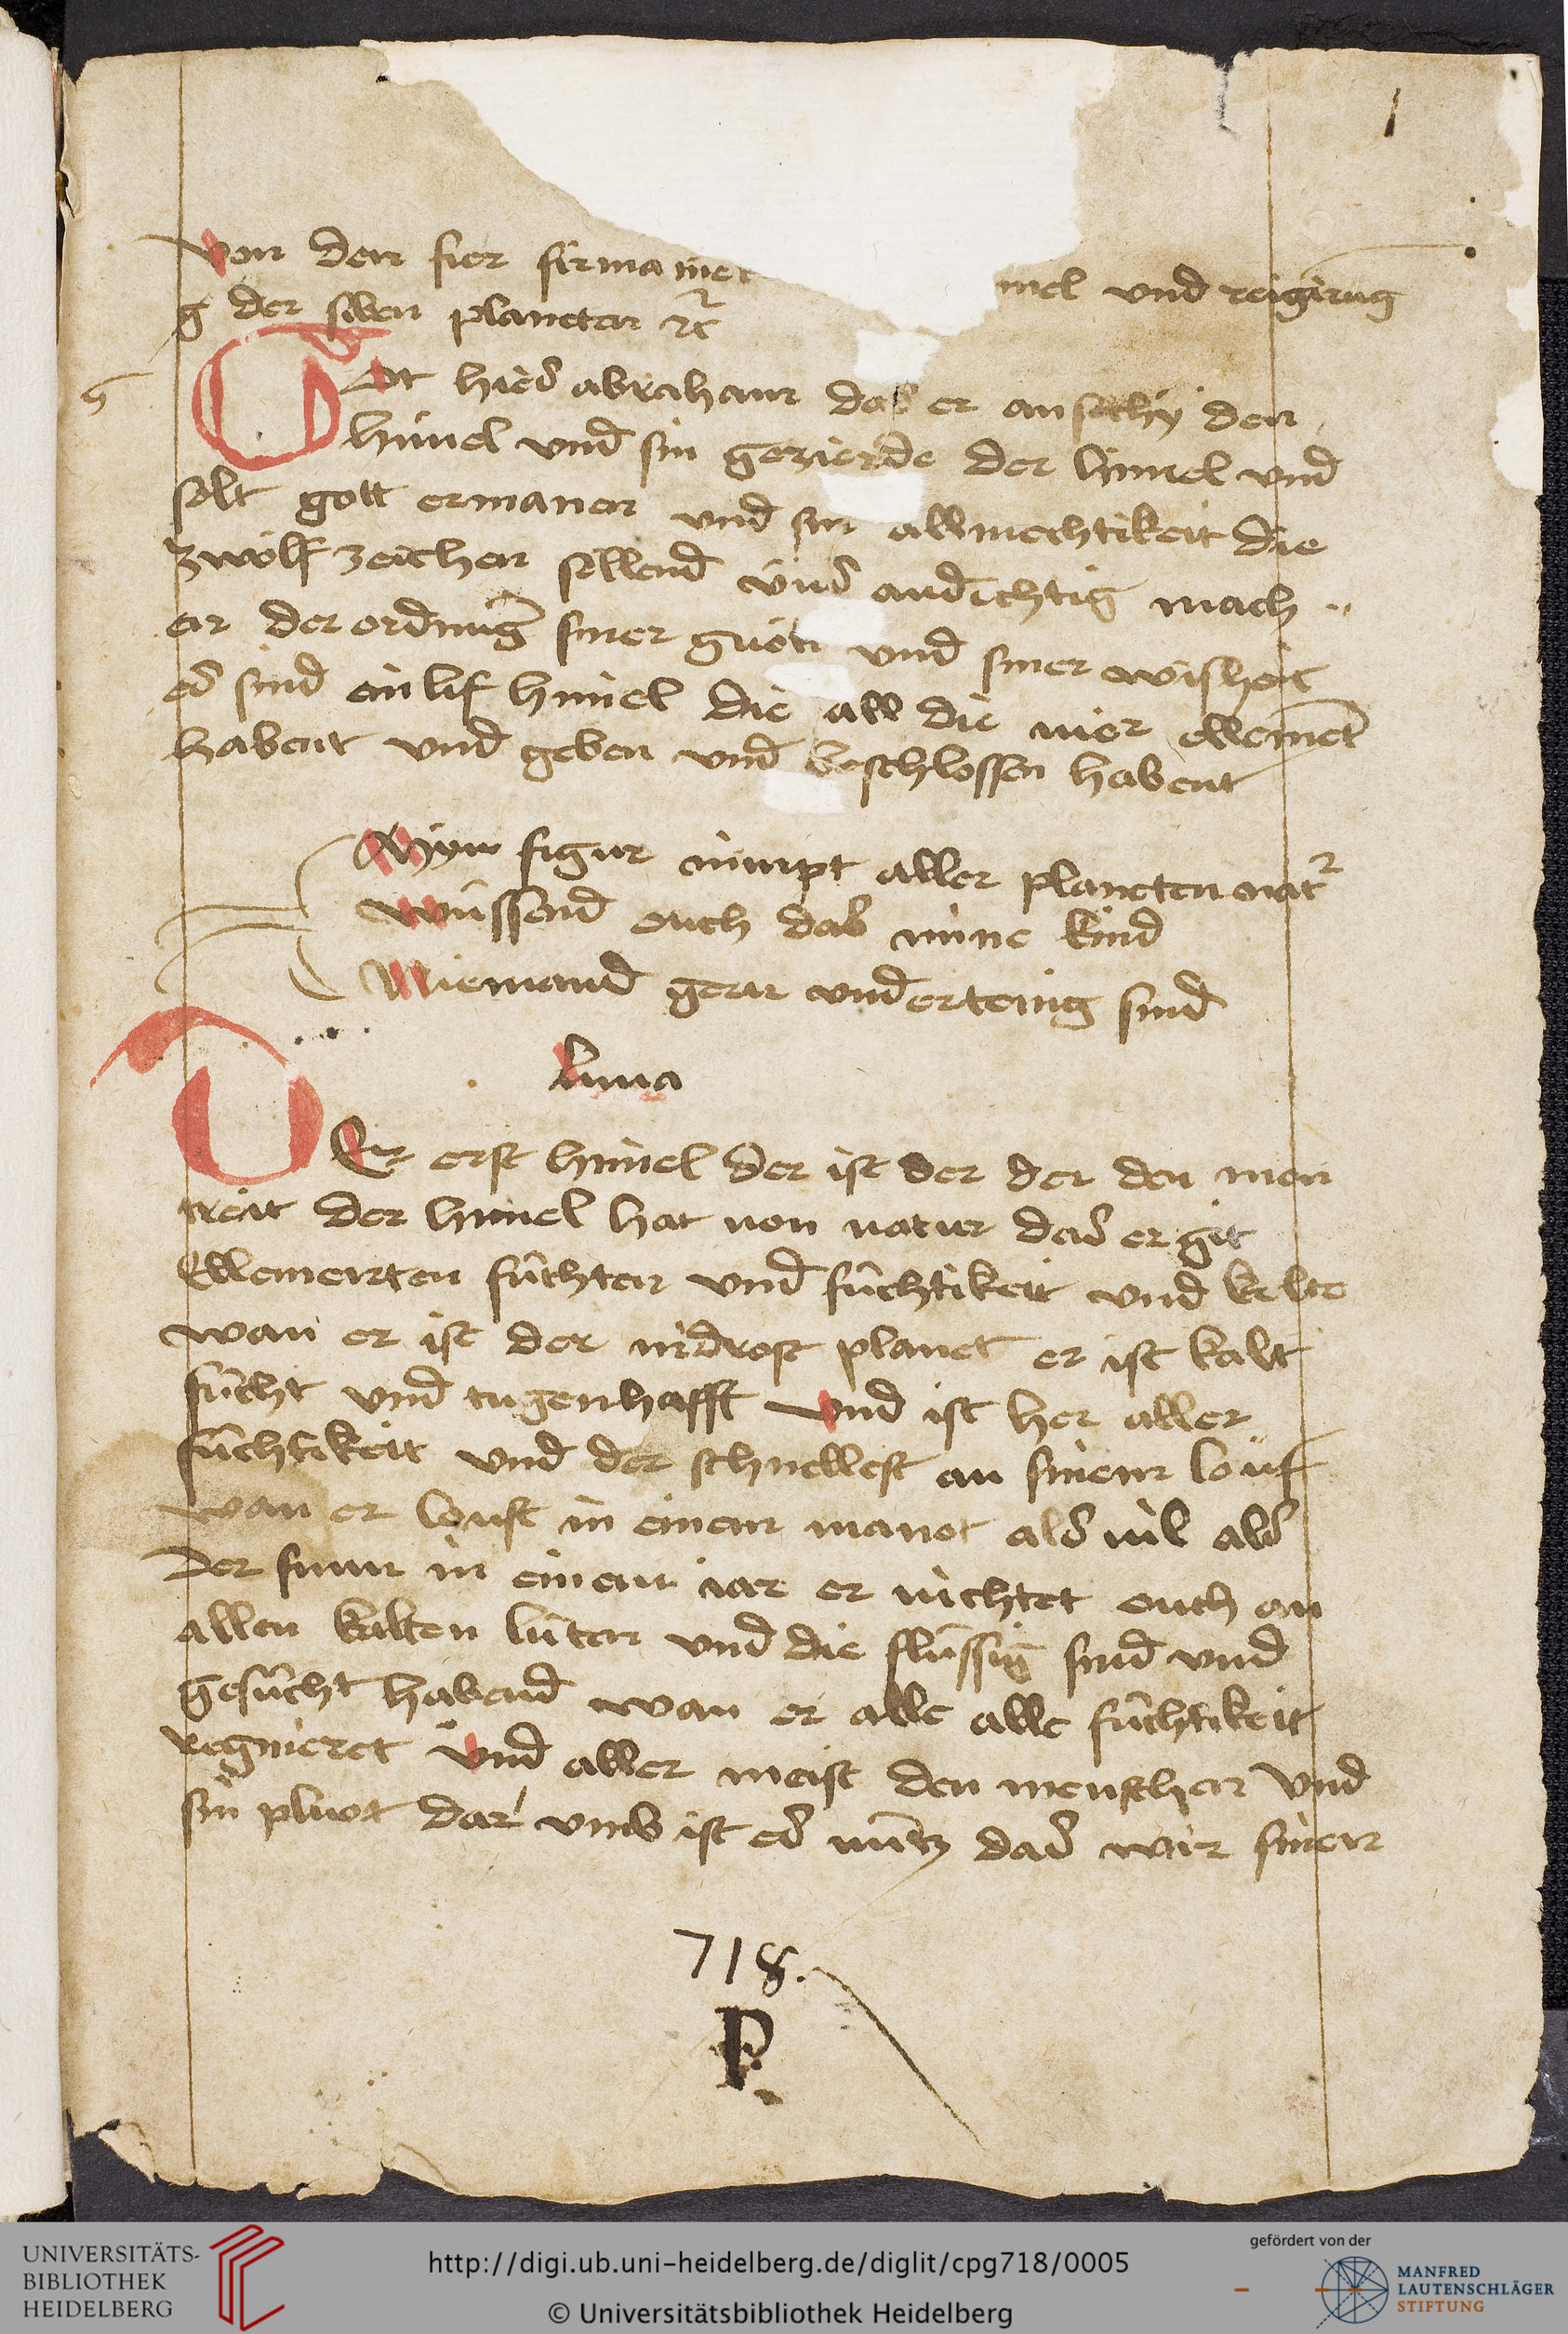 1
von den fier firmamet mel vnd reigirug
g der siben planeten ⁊c
Got hies abraham das er an sechy den
himel vnd sin gezierde der himel vnd
solt gott ermanen vnd sin allmechtikeit die
zwölf zeichen sellend vns andechtig mach
en der ordnug siner guoti vnd siner wisheit
es sind einlif himel die all die vier ellement
habent vnd geben vnd beschlossen habent
Myn figur nimpt aller planeten nat
Wüssend ouch das mine kind
Niemand gern vnderteinig sind
luna
Der erst himel der ist der der den mon
treit der himel hat von natur das er git
Ellementen füchten vnd füchtikeit vnd kelte
wan er ist der nidrost planet er ist kalt
fücht vnd tugenhafft vnd ist her aller
füchtikeit vnd der schnellest an sinem louf
wan er louft in einem manot als vil als
der sunn in einem iar er richtet ouch an
allen kalten lüten vnd die flüssig sind vnd
gesücht habend wan er alle alle füchtikeit
regnieret vnd aller meist den menschen vnd
sin pluot dar vmb ist es nütz das wir sinen
718.
P.
UNIVERSITÄTS-
BIBLIOTHEK
HEIDELBERG
http://digi.ub.uni-heidelberg.de/diglit/cpg718/0005
© Universitätsbibliothek Heidelberg
gefördert von der
MANFRED
LAUTENSCHLÄGER
STIFTUNG